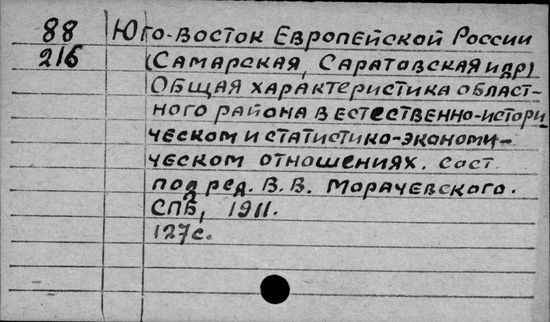 88 Юго-Восток Европейской России
216 (Самарская, Саратовская и др)
Общая характеристика област-
ного района в естественно-истори
ческом и статистико-экономи-
ческом отношениях. Сост.
под ред. В. В. Морачевского.
СПБ, 1911.
127с.